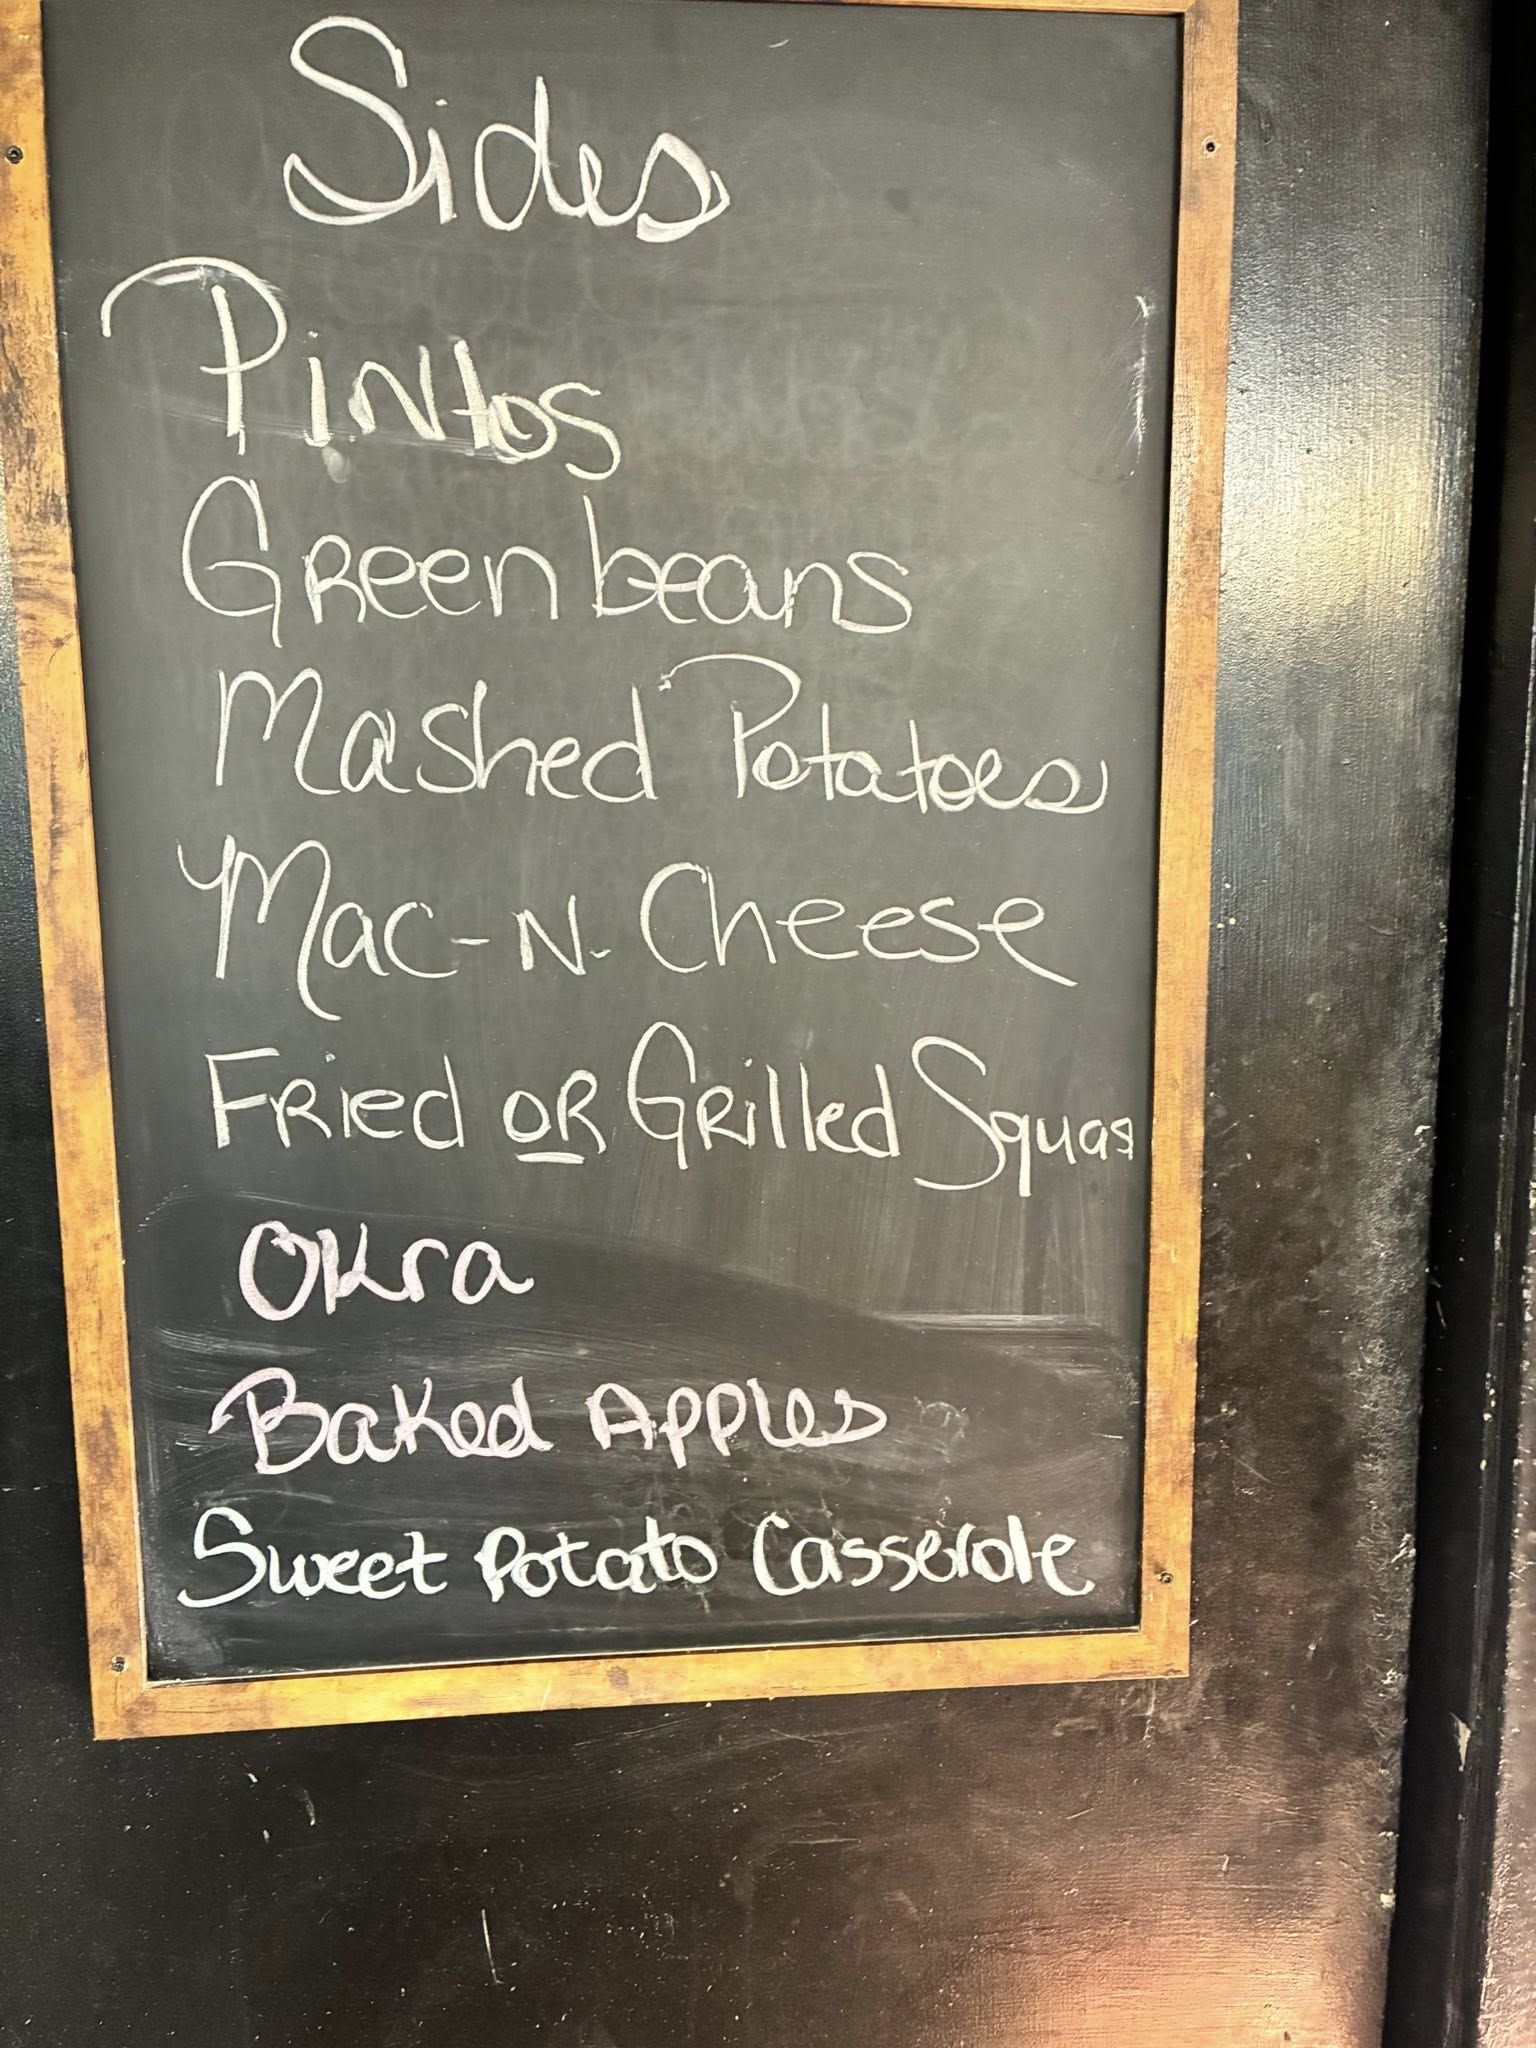 Sides
Pintos
Green beans
Mashed Potatoes
Mac-N-Cheese
Fried OR Grilled Squas
Okra
Baked Apples
Sweet Potato Casserole